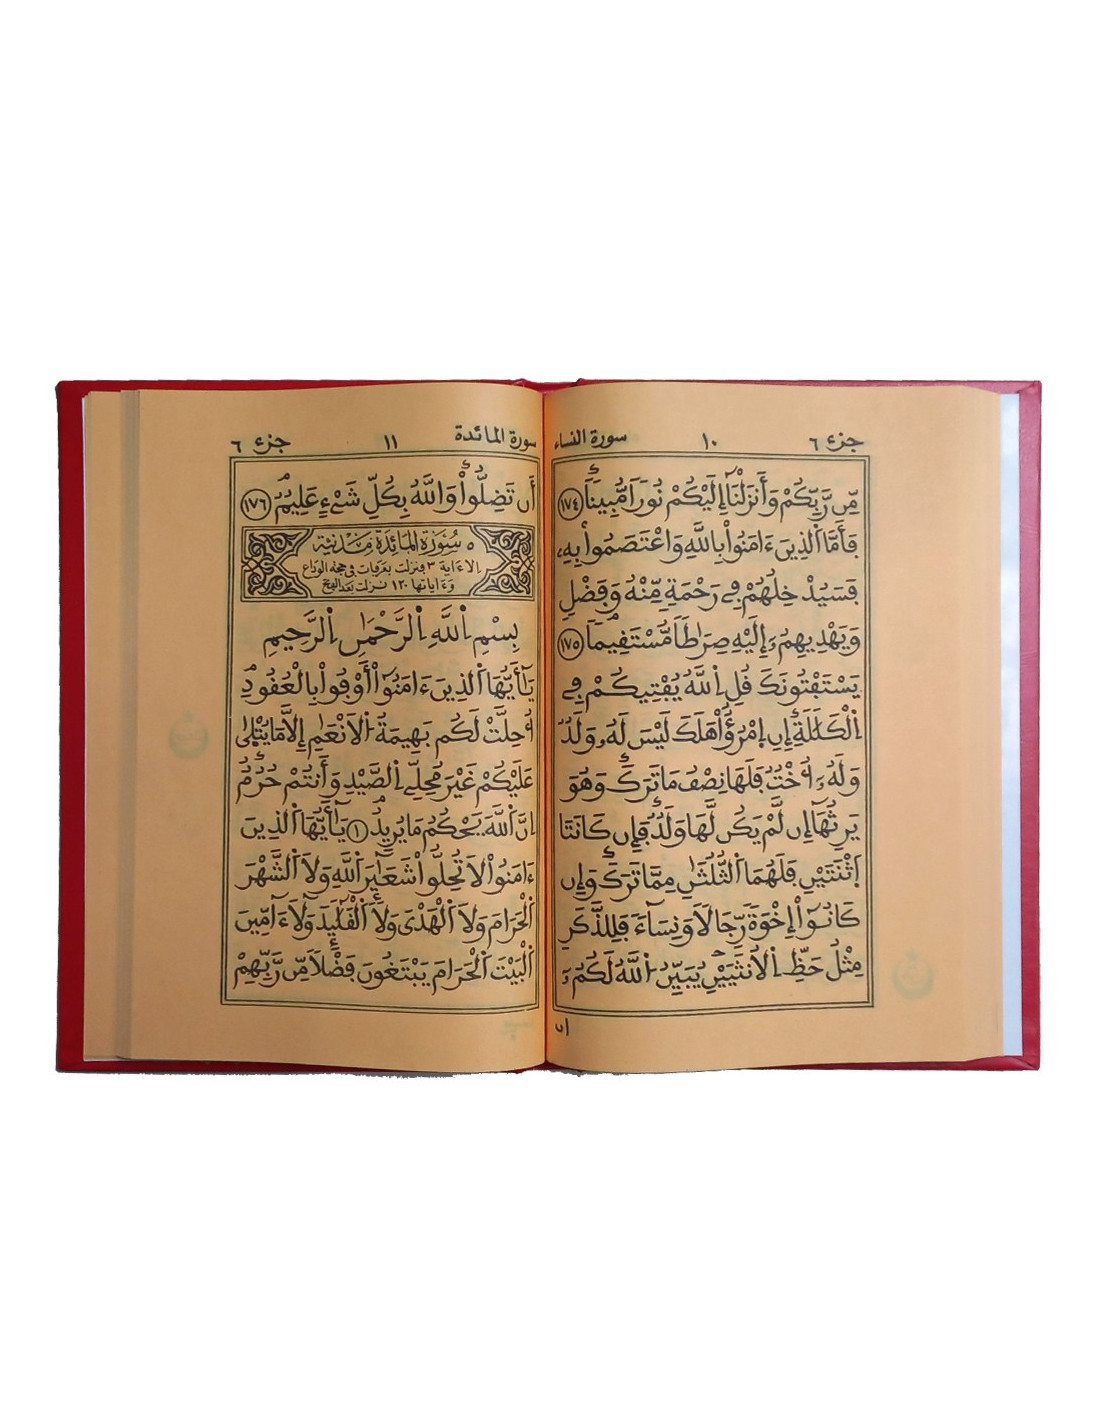 جزء ٦
١٠
سورة النساء
مِّن رَّبِّكُمْ وَأَنزَلْنَا إِلَيْكُمْ نُوراً مُّبِيناً ١٧٤
فَأَمَّا اَلذِينَ ءَامَنُواْ بِاللَّهِ وَاعْتَصَمُواْ بِهِ
فَسَيُدْخِلُهُمْ فِي رَحْمَةٍ مِّنْهُ وَفَضْلٍ
وَيَهْدِيهِمُ إِلَيْهِ صِرَاطاً مُّسْتَقِيماً ١٧٥
يَسْتَفْتُونَكَ قُلِ اِللَّهُ يُفْتِيكُمْ فِي
اِلْكَلَٰلَةِ إِنِ اِمْرُؤٌاْ هَلَكَ لَيْسَ لَهُ وَلَدٌ
وَلَهُ أُخْتٌ فَلَهَا نِصْفُ مَا تَرَكَ وَهُوَ
يَرِثُهَا إِن لَّمْ يَكُن لَّهَا وَلَدٌ فَإِن كَانَتَا
اَثْنَتَيْنِ فَلَهُمَا اَلثُّلُثَٰنِ مِمَّا تَرَكَ وَإِن
كَانُواْ إِخْوَةً رِّجَالاً وَنِسَاءً فَلِلذَّكَرِ
مِثْلُ حَظِّ اِلْأُنثَيَيْنِ يُبَيِّنُ اُللَّهُ لَكُمُ
أن
سورة المائدة
١١
جزء ٦
أَن تَضِلُّواْ وَاللَّهُ بِكُلِّ شَيْءٍ عَلِيمٌ ١٧٦
٥ سُورَةُ المَائِدَةِ مَدَنِيَّة
الا ءاية ٣ فنزلت بعرفات في حجة الوداع
وءاياتها ١٢٠ نزلت بعد الفتح
بِسْمِ اِللَّهِ اِلرَّحْمَٰنِ اِلرَّحِيمِ
يَٰأَيُّهَا اَلذِينَ ءَامَنُواْ أَوْفُواْ بِالْعُقُودِ
أُحِلَّتْ لَكُم بَهِيمَةُ اُلْأَنْعَٰمِ إِلاَّ مَا يُتْلَىٰ
عَلَيْكُمْ غَيْرَ مُحِلِّي اِلصَّيْدِ وَأَنتُمْ حُرُمٌ
إِنَّ اَللَّهَ يَحْكُمُ مَا يُرِيدُ ١ يَٰأَيُّهَا اَلذِينَ
ءَامَنُواْ لَا تُحِلُّواْ شَعَٰئِرَ اَللَّهِ وَلَا اَلشَّهْرَ
اَلْحَرَامَ وَلَا اَلْهَدْيَ وَلَا اَلْقَلَٰئِدَ وَلَا ءَامِّينَ
اَلْبَيْتَ اَلْحَرَامَ يَبْتَغُونَ فَضْلاً مِّن رَّبِّهِمْ